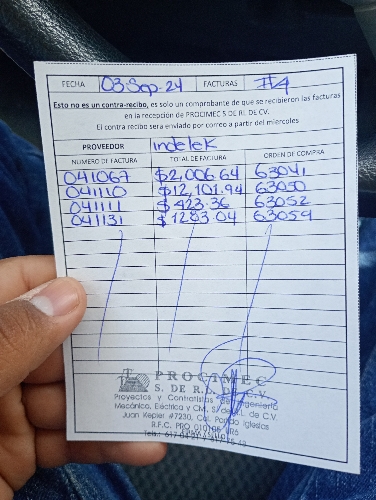 FECHA 03-Sep-24 FACTURAS #4
Esto no es un contra-recibo, es solo un comprobante de que se recibieron las facturas
en la recepción de PROCIMEC S DE RL DE CV.
El contra recibo sera enviado por correo a partir del miercoles
PROVEEDOR Indelek
NUMERO DE FACTURA TOTAL DE FACTURA ORDEN DE COMPRA
041067 $2,006.64 63041
041110 $12,101.94 63050
041111 $423.36 63052
041131 $1283.04 63059
PROCIMEC
S. DE R.L. DE C.V.
Proyectos y Contratistas de Ingeniería
Mecánica, Eléctrica y CM, S. de R.L. de C.V.
Juan Kepler #7230, Col. Iglesias
R.F.C. PRO
Tels.: